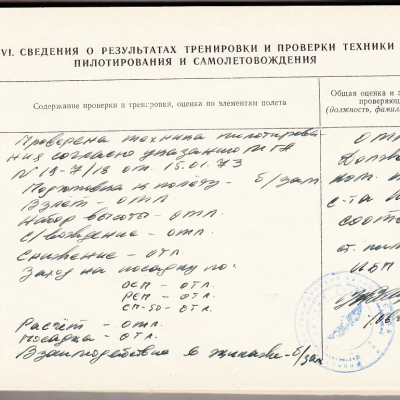 VI. СВЕДЕНИЯ О РЕЗУЛЬТАТАХ ТРЕНИРОВКИ И ПРОВЕРКИ ТЕХНИКИ
ПИЛОТИРОВАНИЯ И САМОЛЕТОВОЖДЕНИЯ
Содержание проверки и тренировки, оценка по элементам полета
Общая оценка и з
проверяющ
(должность, фамили
Проверена техника пилотирова-
ния согласно указанию МГА
N 19-7/18 от 15.01.73
Подготовка к полёту - б/зам
Взлёт - отл.
Набор высоты - отл.
С/вождение - отл.
Снижение - отл.
Заход на посадку по:
ОСП - отл.
РСП - отл.
СП-50 - отл.
Расчёт - отл.
Посадка - отл.
Взаимодействие в экипаже - б/зам